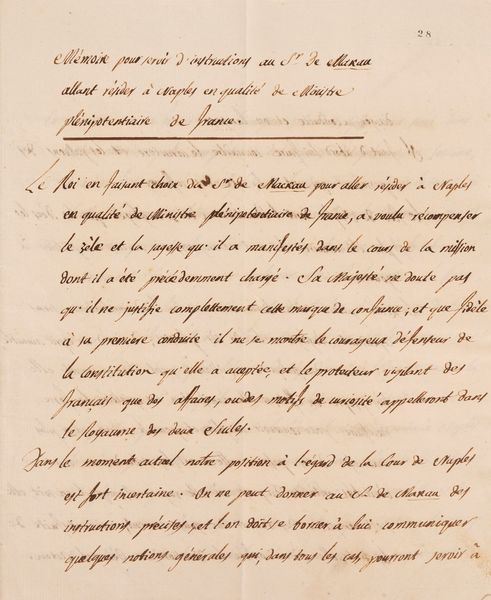 28
Mémoire pour servir d'instructions au Sr. de Makau
allant résider à Naples en qualité de Ministre
plénipotentiaire de france.
Le Roi en faisant choix du Sr. de Makau pour aller résider à Naples
en qualité de Ministre plénipotentiaire de france, a voulu récompenser
le zèle et la sagesse qu'il a manifestés dans le cours de la mission
dont il a été précédemment chargé. Sa Majesté ne doute pas
qu'il ne justifie complettement cette marque de confiance, et que fidèle
à sa premiere conduite il ne se montre le courageux défenseur de
la Constitution qu'elle a acceptée, et le protecteur vigilant des
français que des affaires, ou des motifs de curiosité appelleront dans
le Royaume des deux Siciles.
Dans le moment actuel notre position à l'égard de la Cour de Naples
est fort incertaine. On ne peut donner au S. de Makau des
instructions précises, et l'on doit se borner à lui communiquer
quelques notions générales qui, dans tous les cas, pourront servir à